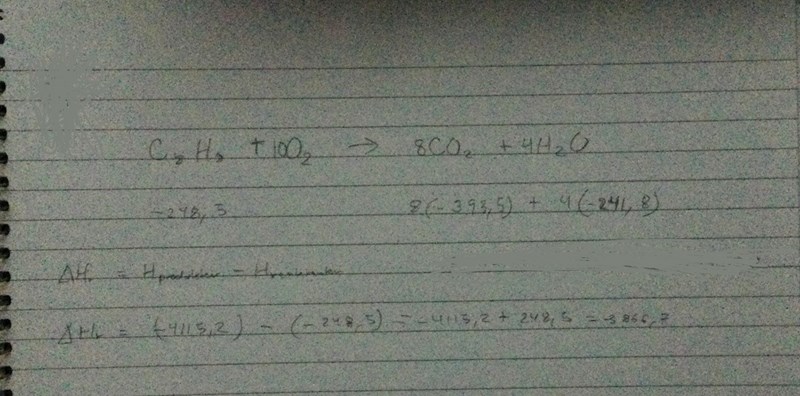 C₈H₈ + 10O₂ → 8CO₂ + 4H₂O
-248,5 8(-393,5) + 4(-241,8)
ΔHr = Hproductos - Hreactivos
ΔHr = (-4115,2) - (-248,5) = -4115,2 + 248,5 = -3866,7